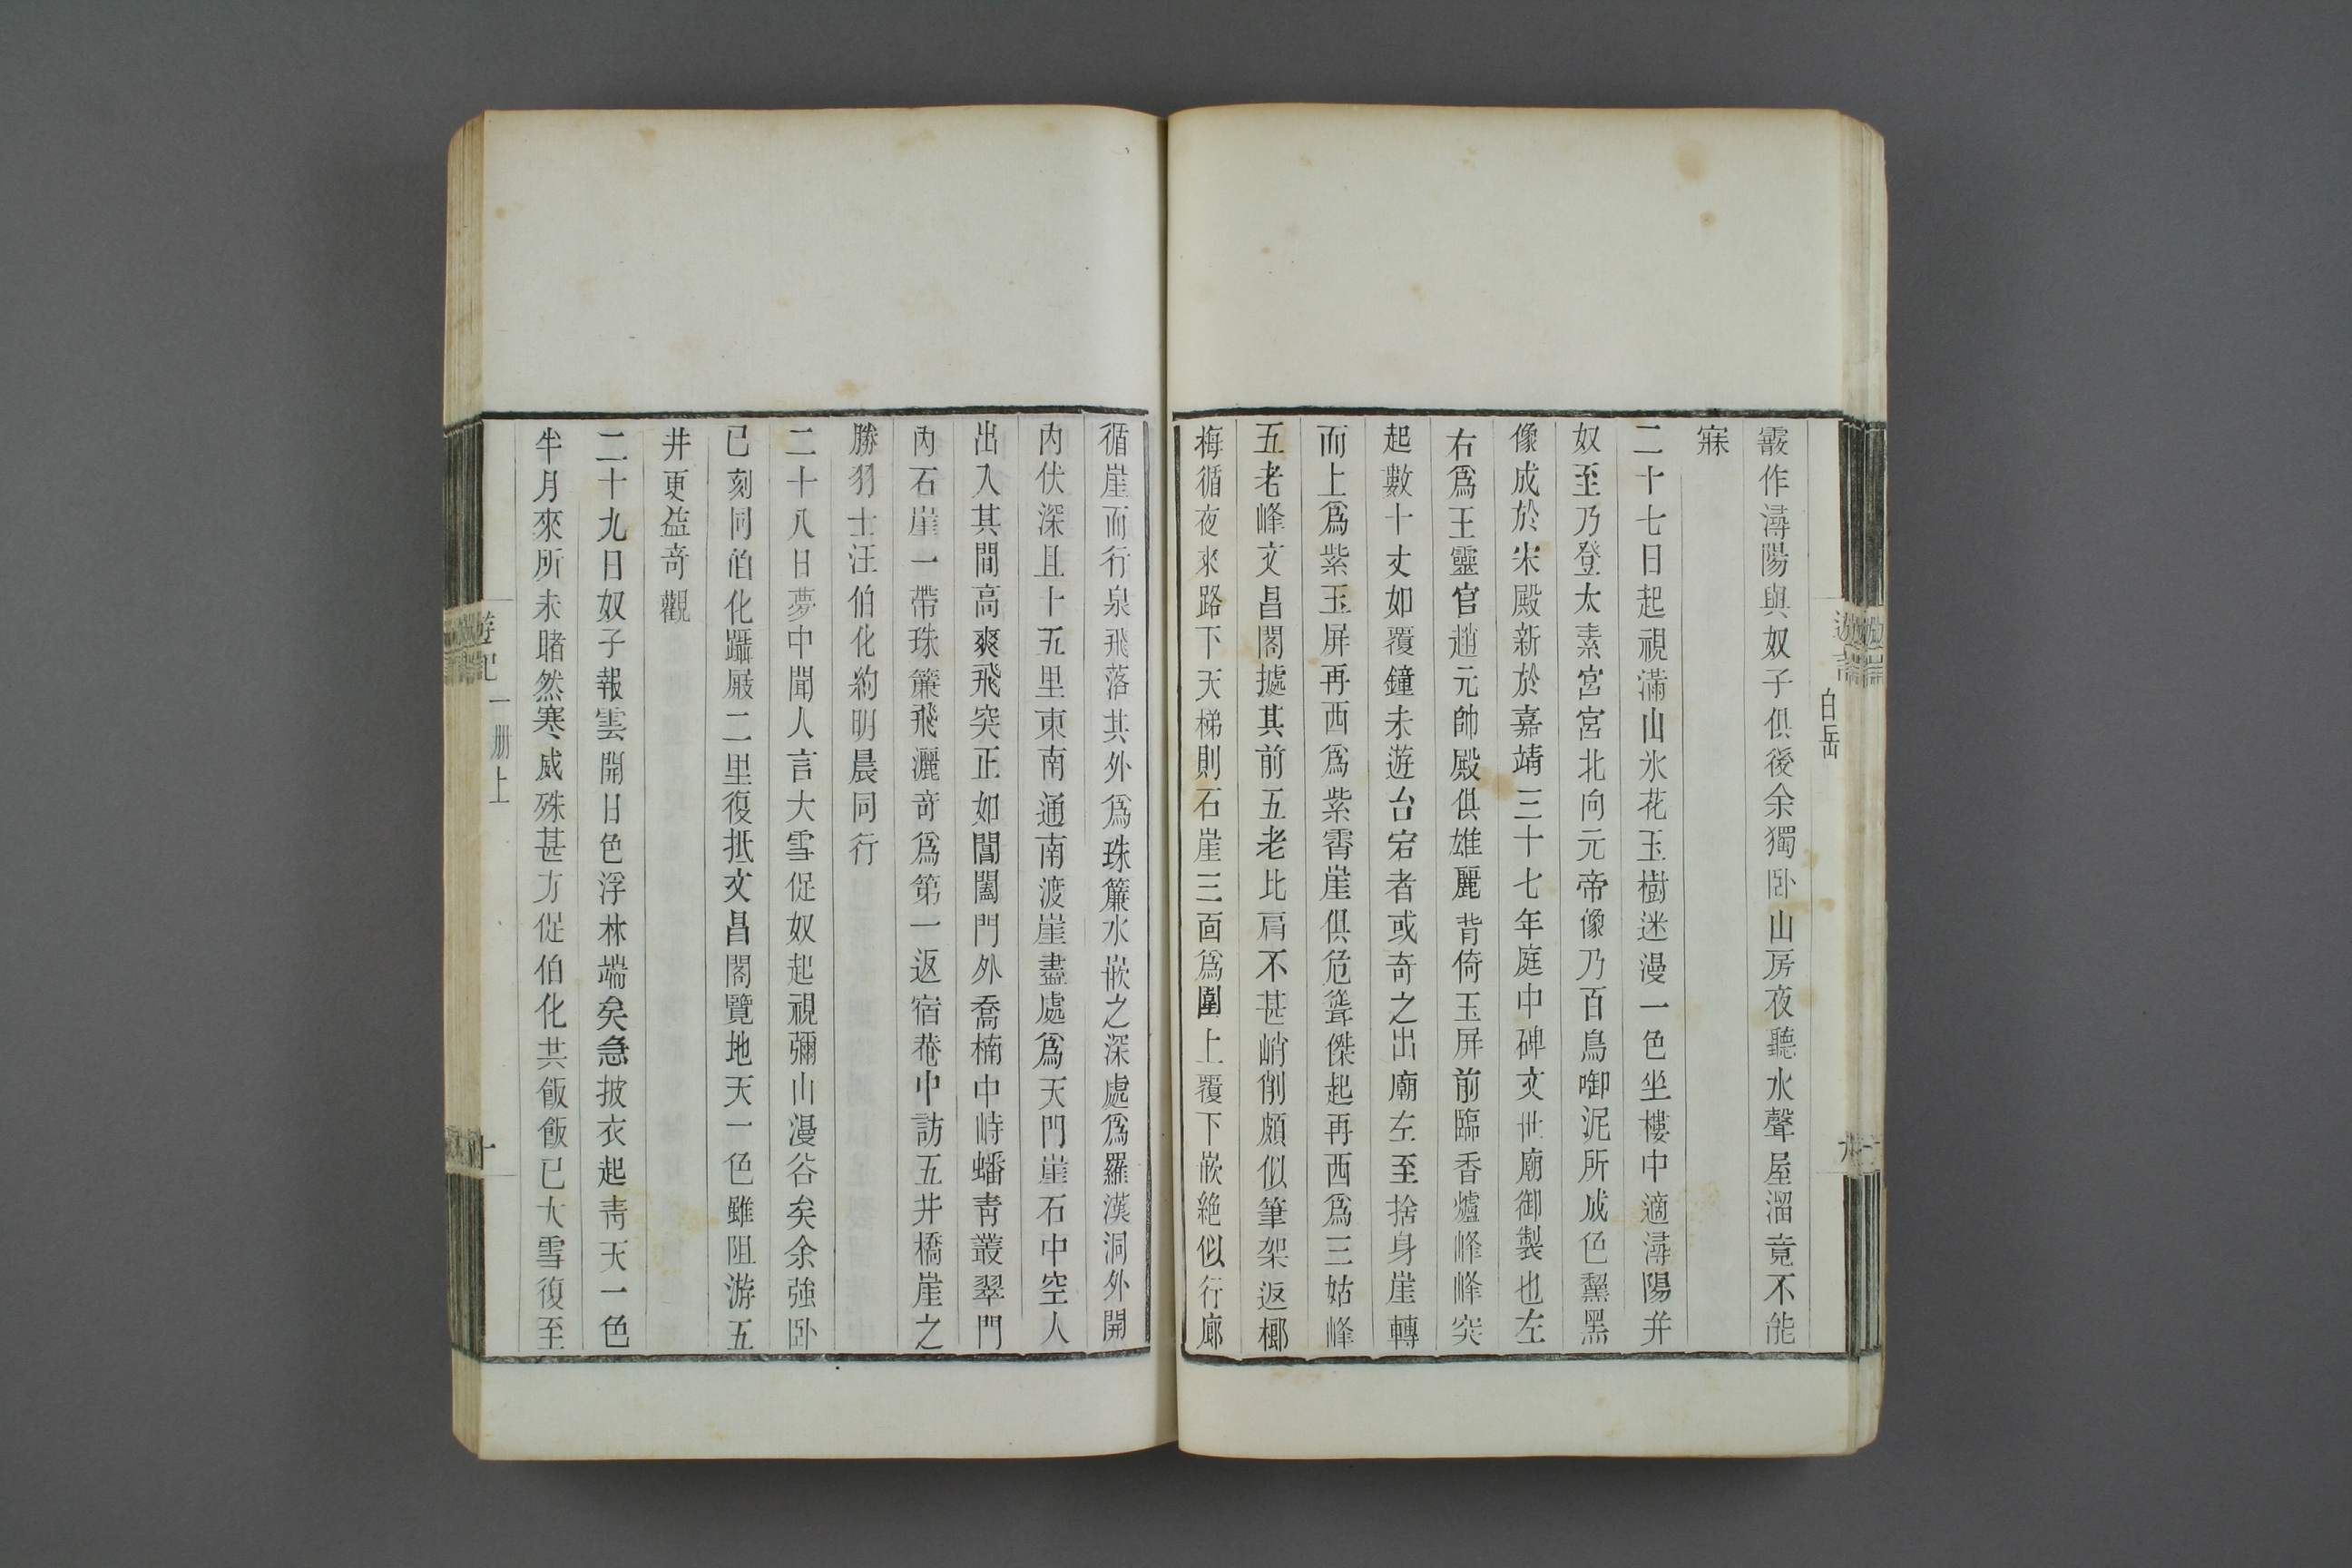 白岳
霰作潯陽與奴子俱後余獨卧山房夜聽水聲屋溜竟不能
寐
二十七日起視滿山氷花玉樹迷漫一色坐樓中適潯陽并
奴至乃登太素宮宮北向元帝像乃百鳥啣泥所成色黧黑
像成於宋殿新於嘉靖三十七年庭中碑文世廟御製也左
右爲王靈官趙元帥殿俱雄麗背倚玉屏前臨香爐峰峰突
起數十丈如覆鐘未遊台宕者或奇之出廟左至捨身崖轉
而上爲紫玉屏再西爲紫霄崖俱危聳傑起再西爲三姑峰
五老峰文昌閣據其前五老比肩不甚峭削頗似筆架返榔
梅循夜來路下天梯則石崖三面爲圍上覆下嵌絶似行廊
循崖而行泉飛落其外爲珠簾水嵌之深處爲羅漢洞外開
内伏深且十五里東南通南渡崖盡處爲天門崖石中空人
出入其間高爽飛突正如閶闔門外喬楠中峙蟠青叢翠門
内石崖一帶珠簾飛灑奇爲第一返宿菴中訪五井橋崖之
勝羽士汪伯化約明晨同行
二十八日夢中聞人言大雪促奴起視彌山漫谷矣余強卧
已刻同伯化躡屐二里復抵文昌閣覽地天一色雖阻游五
井更益奇觀
二十九日奴子報雲開日色浮林端矣急披衣起青天一色
半月來所未睹然寒威殊甚方促伯化共飯飯已大雪復至
遊記 一册上
十